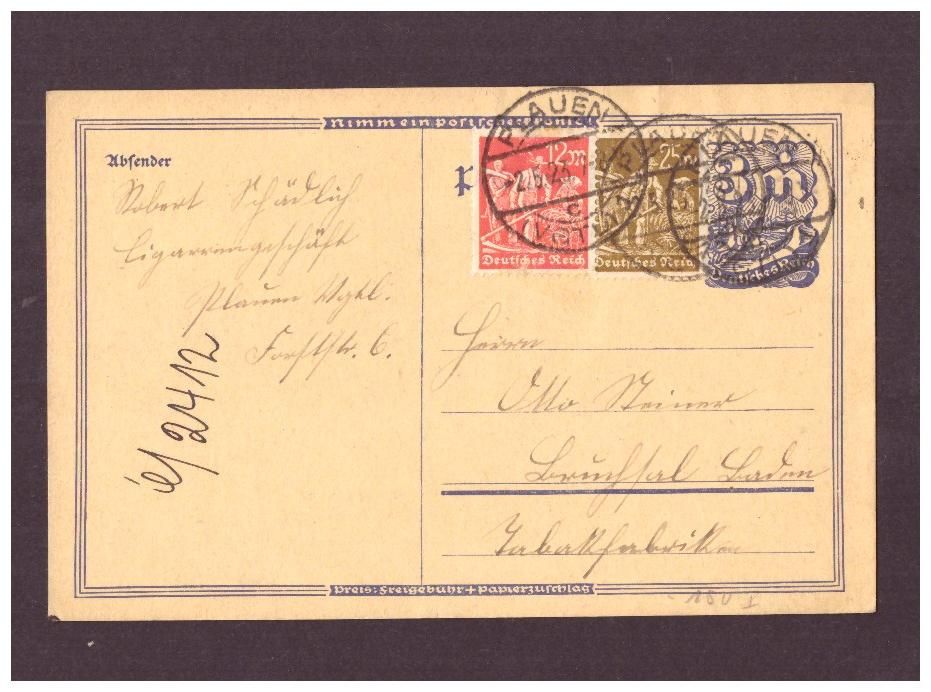 Nimm ein Postscheckkonto!
Absender
Robert Schädlich
Cigarrengeschäft
Plauen Vgtl.
Forststr. 6.
2412
12 m
Deutsches Reich
25 m
Deutsches Reich
3 m
Deutsches Reich
PLAUEN
-2.5.23
c
(VOGTL)
PLAUEN
PLAUEN
Herrn
Otto Steiner
Bruchsal Baden
Tabakfabriken
Preis: Freigebühr + Papierzuschlag
180 I